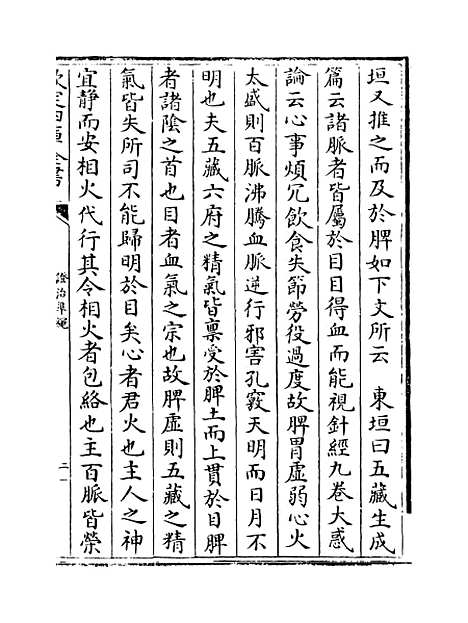 垣又推之而及於脾如下文所云　東垣曰五藏生成
篇云諸脈者皆屬於目目得血而能視針經九卷大惑
論云心事煩冗飲食失節勞役過度故脾胃虛弱心火
太盛則百脈沸騰血脈逆行邪害孔竅天明而日月不
明也夫五藏六府之精氣皆禀受於脾土而上貫於目脾
者諸陰之首也目者血氣之宗也故脾虛則五藏之精
氣皆失所司不能歸明於目矣心者君火也主人之神
宜静而安相火代行其令相火者包絡也主百脈皆榮
欽定四庫全書
證治準繩